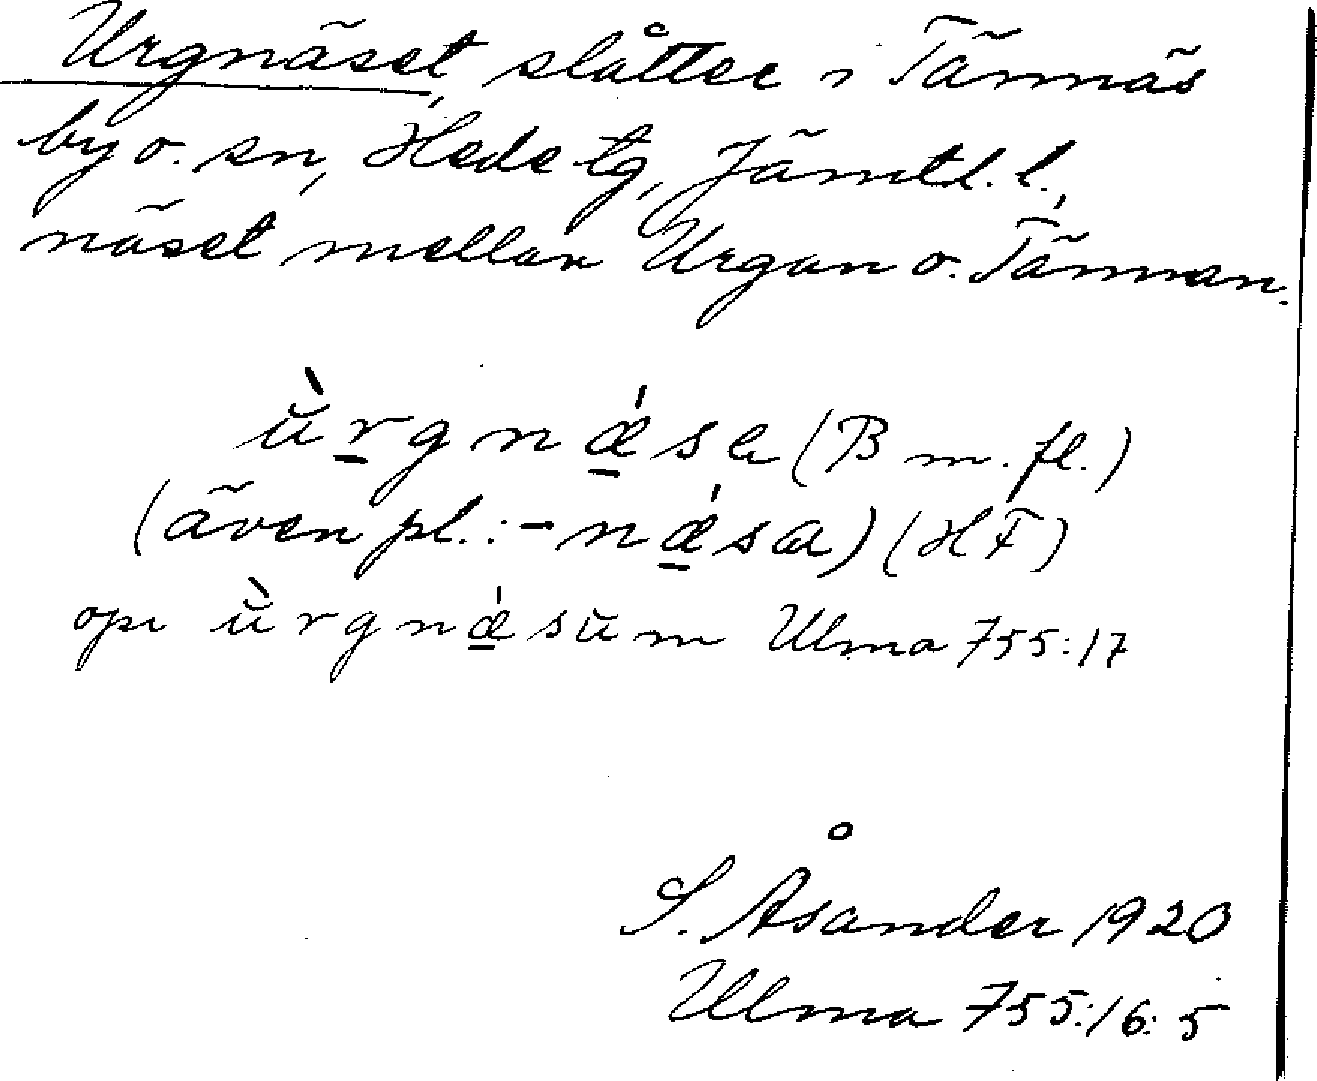 Urgnäset, slåtter i Tännäs
by o. sn, Hede tg, Jämtl. l.,
näset mellan Urgan o. Tännan.
ùrgnǽsa (B m. fl.)
(även pl.: -nǽsa) (HF)
opi ùrgnǽsum Ulma 755:17
S. Åsander 1920
Ulma 755:16:5